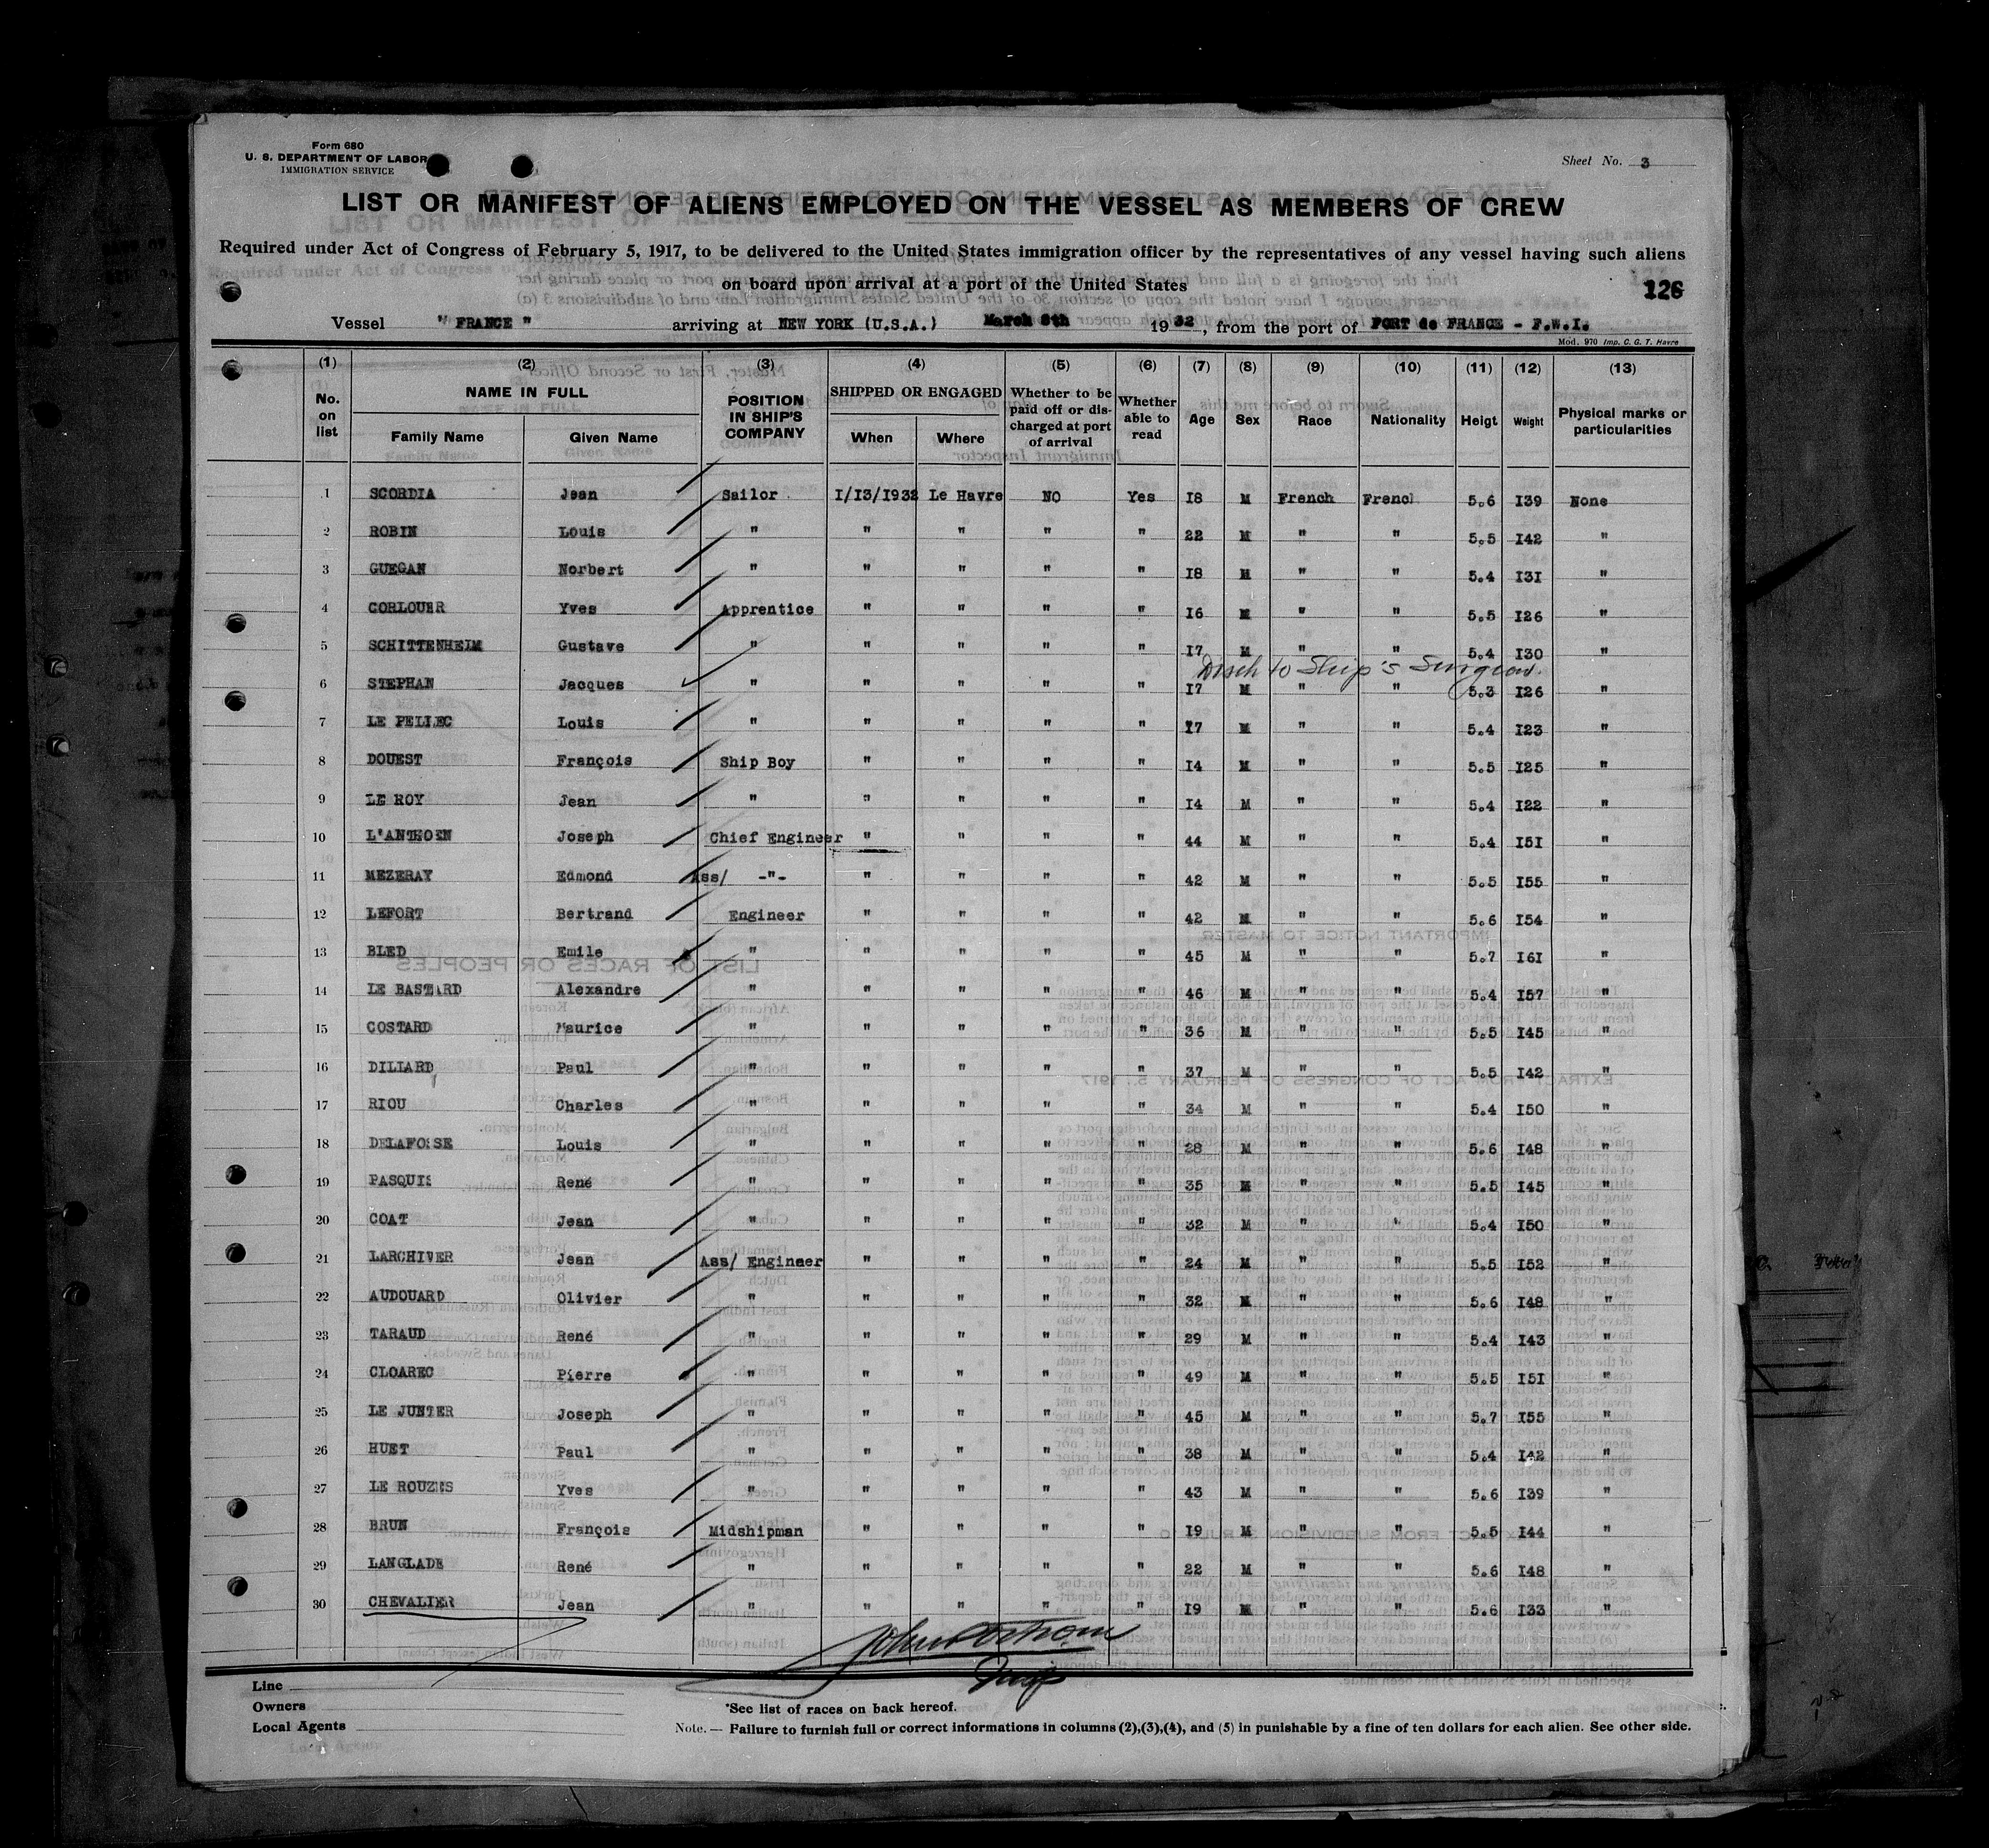 Form 680
U. S. DEPARTMENT OF LABOR
IMMIGRATION SERVICE
Sheet No. 3
LIST OR MANIFEST OF ALIENS EMPLOYED ON THE VESSEL AS MEMBERS OF CREW
Required under Act of Congress of February 5, 1917, to be delivered to the United States immigration officer by the representatives of any vessel having such aliens
on board upon arrival at a port of the United States
126
Vessel " FRANCE " arriving at NEW YORK (U.S.A.) March 8th 1932, from the port of FORT de FRANCE - F.W.I.
Mod. 970 Imp. C. G. T. Havre
(1) (2) (3) (4) (5) (6) (7) (8) (9) (10) (11) (12) (13)
No. on list NAME IN FULL Family Name Given Name POSITION IN SHIP'S COMPANY SHIPPED OR ENGAGED When Where Whether to be paid off or discharged at port of arrival Whether able to read Age Sex Race Nationality Heigt Weight Physical marks or particularities
1 SCORDIA Jean Sailor I/I3/1932 Le Havre NO Yes I8 M French Frencl 5.6 I39 None
2 ROBIN Louis " " " " " 22 M " " 5.5 I42 "
3 GUEGAN Norbert " " " " " I8 M " " 5.4 I3I "
4 CORLOUER Yves Apprentice " " " " I6 M " " 5.5 I26 "
5 SCHITTENHEIM Gustave " " " " " I7 M " " 5.4 I30 "
Disch to Ship's Surgeon.
6 STEPHAN Jacques " " " " " I7 M " " 5.3 I26 "
7 LE PELLEC Louis " " " " " I7 M " " 5.4 I23 "
8 DOUEST François Ship Boy " " " " I4 M " " 5.5 I25 "
9 LE ROY Jean " " " " " I4 M " " 5.4 I22 "
10 L'ANTHOEN Joseph Chief Engineer " " " " 44 M " " 5.4 I5I "
11 MEZERAY Edmond Ass/ -"- " " " " 42 M " " 5.5 I55 "
12 LEFORT Bertrand Engineer " " " " 42 M " " 5.6 I54 "
13 BLED Emile " " " " " 45 M " " 5.7 I6I "
14 LE BASTARD Alexandre " " " " " 46 M " " 5.4 I57 "
15 COSTARD Maurice " " " " " 36 M " " 5.5 I45 "
16 DILIARD Paul " " " " " 37 M " " 5.5 I42 "
17 RIOU Charles " " " " " 34 M " " 5.4 I50 "
18 DELAFOSSE Louis " " " " " 28 M " " 5.6 I48 "
19 PASQUIS René " " " " " 35 M " " 5.5 I45 "
20 COAT Jean " " " " " 32 M " " 5.4 I50 "
21 LARCHIVER Jean Ass/ Engineer " " " " 24 M " " 5.5 I52 "
22 AUDOUARD Olivier " " " " " 32 M " " 5.6 I48 "
23 TARAUD René " " " " " 29 M " " 5.4 I43 "
24 CLOAREC Pierre " " " " " 49 M " " 5.5 I5I "
25 LE JUNTER Joseph " " " " " 45 M " " 5.7 I55 "
26 HUET Paul " " " " " 38 M " " 5.4 I42 "
27 LE ROUZES Yves " " " " " 43 M " " 5.6 I39 "
28 BRUN François Midshipman " " " " I9 M " " 5.5 I44 "
29 LANGLADE René " " " " " 22 M " " 5.6 I48 "
30 CHEVALIER Jean " " " " " I9 M " " 5.6 I33 "
Line
Owners
Local Agents
*See list of races on back hereof.
Note. — Failure to furnish full or correct informations in columns (2),(3),(4), and (5) in punishable by a fine of ten dollars for each alien. See other side.